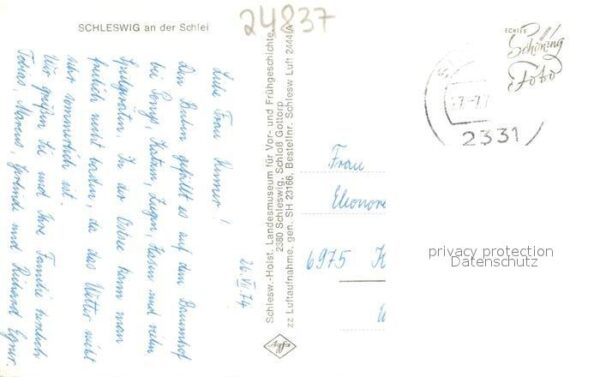 SCHLESWIG an der Schlei
24837
26. VI. 74
Liebe Frau
Den Buben gefällt es auf dem Bauernhof
bei Ponys, Katzen, Ziegen, Hasen und vielen
Spielgeräten. In der Ostsee kann man
freilich nicht baden, da das Wetter nicht
sehr sommerlich ist.
Wir grüßen Sie und Ihre Familie herzlich
Tobias, Marcus, Gerlinde und Richard
Schlesw.-Holst. Landesmuseum für Vor- und Frühgeschichte
2380 Schleswig, Schloß Gottorp
zz Luftaufnahme, gen. SH 23166, Bestellnr. Schlesw Luft 24440A
Agfa
ECHTES
Schöning
Foto
2331
Frau
Eleonore
6975
privacy protection
Datenschutz